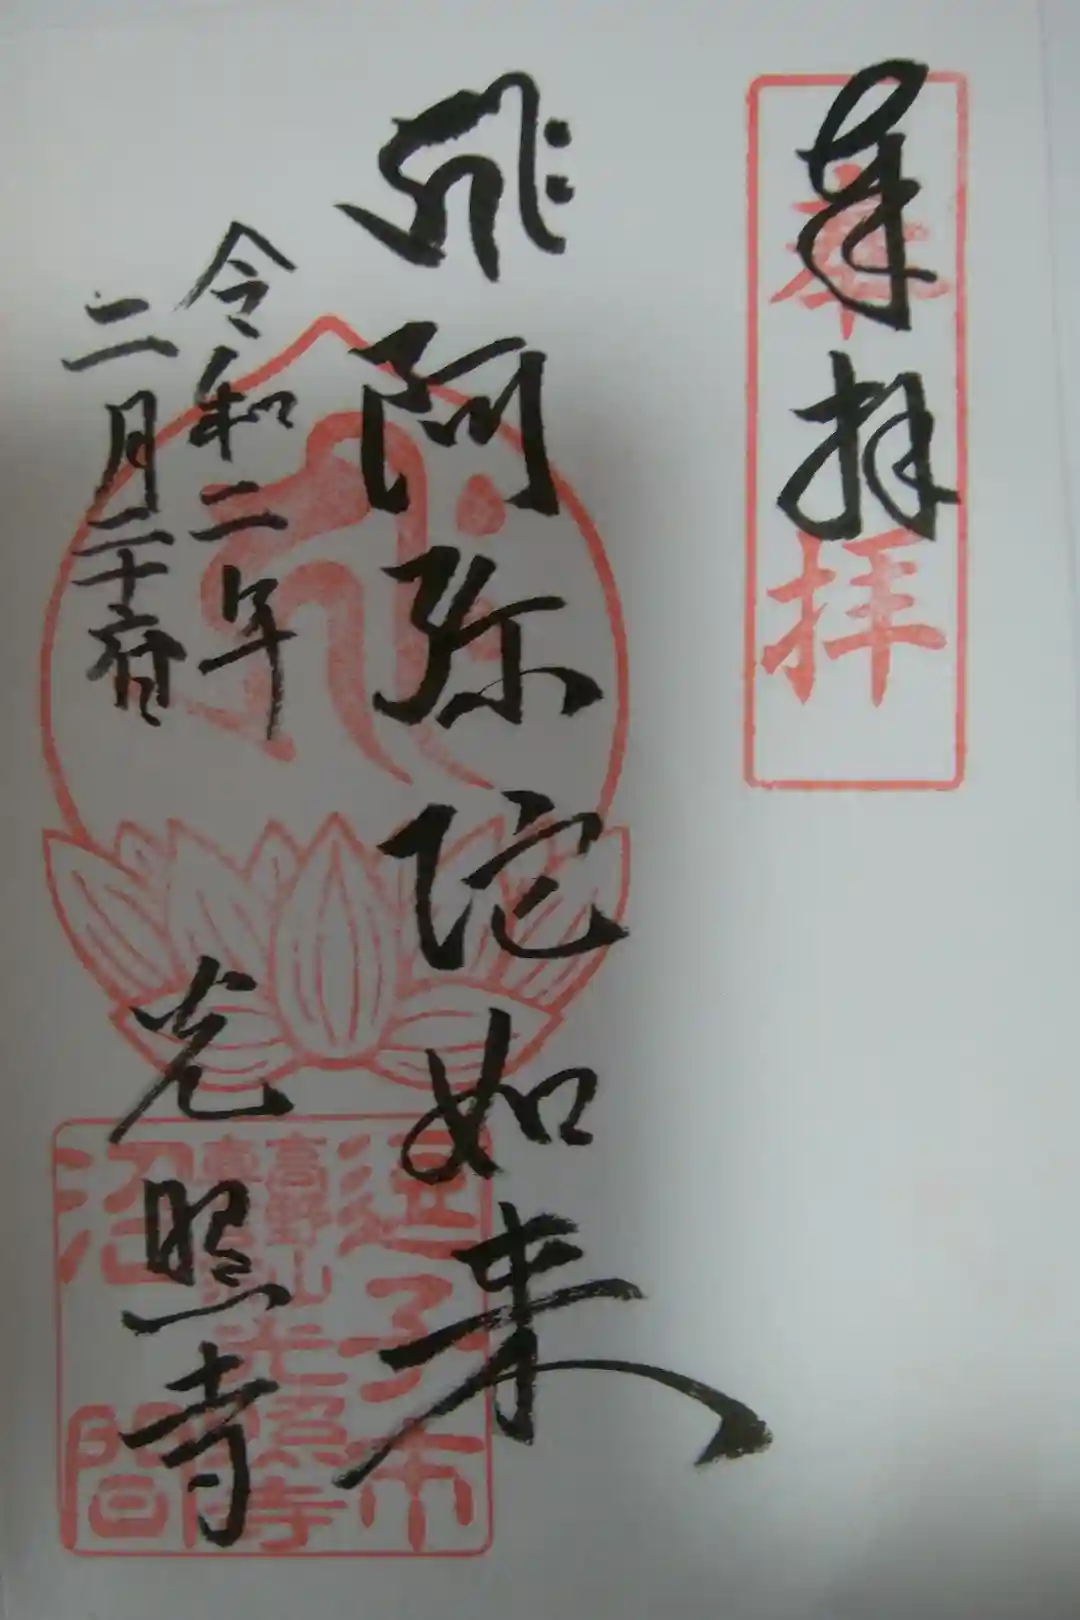 奉拝
奉拝
阿弥陀如来
令和二年
二月二十
光照寺
逗子市
高野山
光照寺
沼間